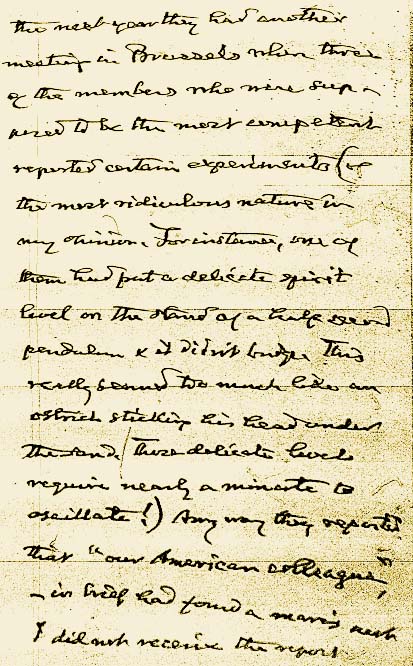 the next year they had another
meeting in Brussels when three
of the members who were sup-
posed to be the most competent
reported certain experiments (of
the most ridiculous nature in
my opinion. For instance, one of
them had put a delicate spirit
level on the stand of a half second
pendulum & it didn't budge. This
really seemed too much like an
ostrich sticking his head under
the sand. These delicate levels
require nearly a minute to
oscillate!) Any way they reported
that "our American colleague",
– in brief had found a mare's nest
I did not receive the report